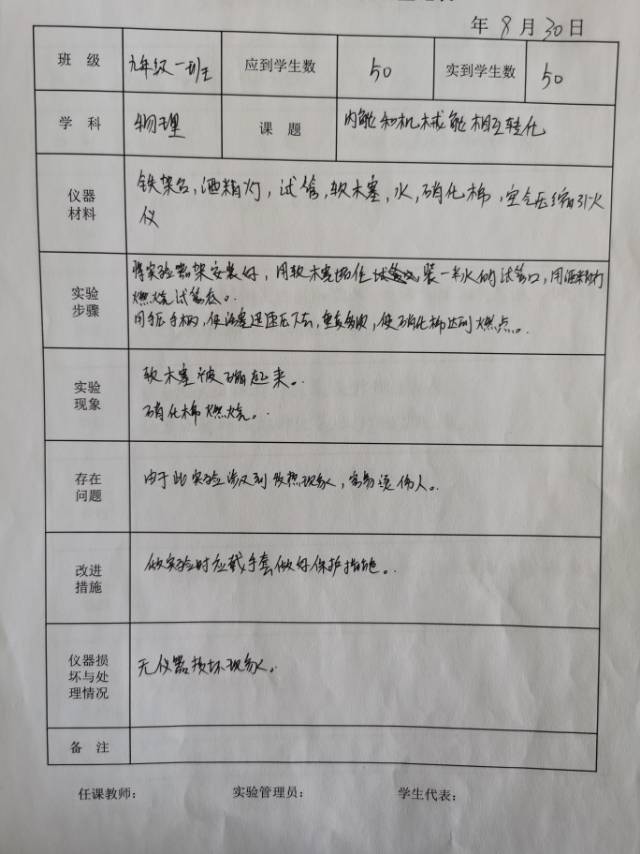 年 8 月 30 日
班 级 九年级一班 应到学生数 50 实到学生数 50
学 科 物理 课 题 内能和机械能相互转化
仪器材料 铁架台,酒精灯,试管,软木塞,水,硝化棉,空气压缩引火
仪
实验步骤 将实验器架安装好,用软木塞塞住装一半水的试管口,用酒精灯
燃烧试管底。
用手压手柄,使活塞迅速压下去,重复多次,使硝化棉达到燃点。
实验现象 软木塞被蹦起来。
硝化棉燃烧。
存在问题 由于此实验涉及到发热现象,容易烫伤人。
改进措施 做实验时应戴手套做好保护措施。
仪器损坏与处理情况 无仪器损坏现象。
备 注
任课教师: 实验管理员: 学生代表: